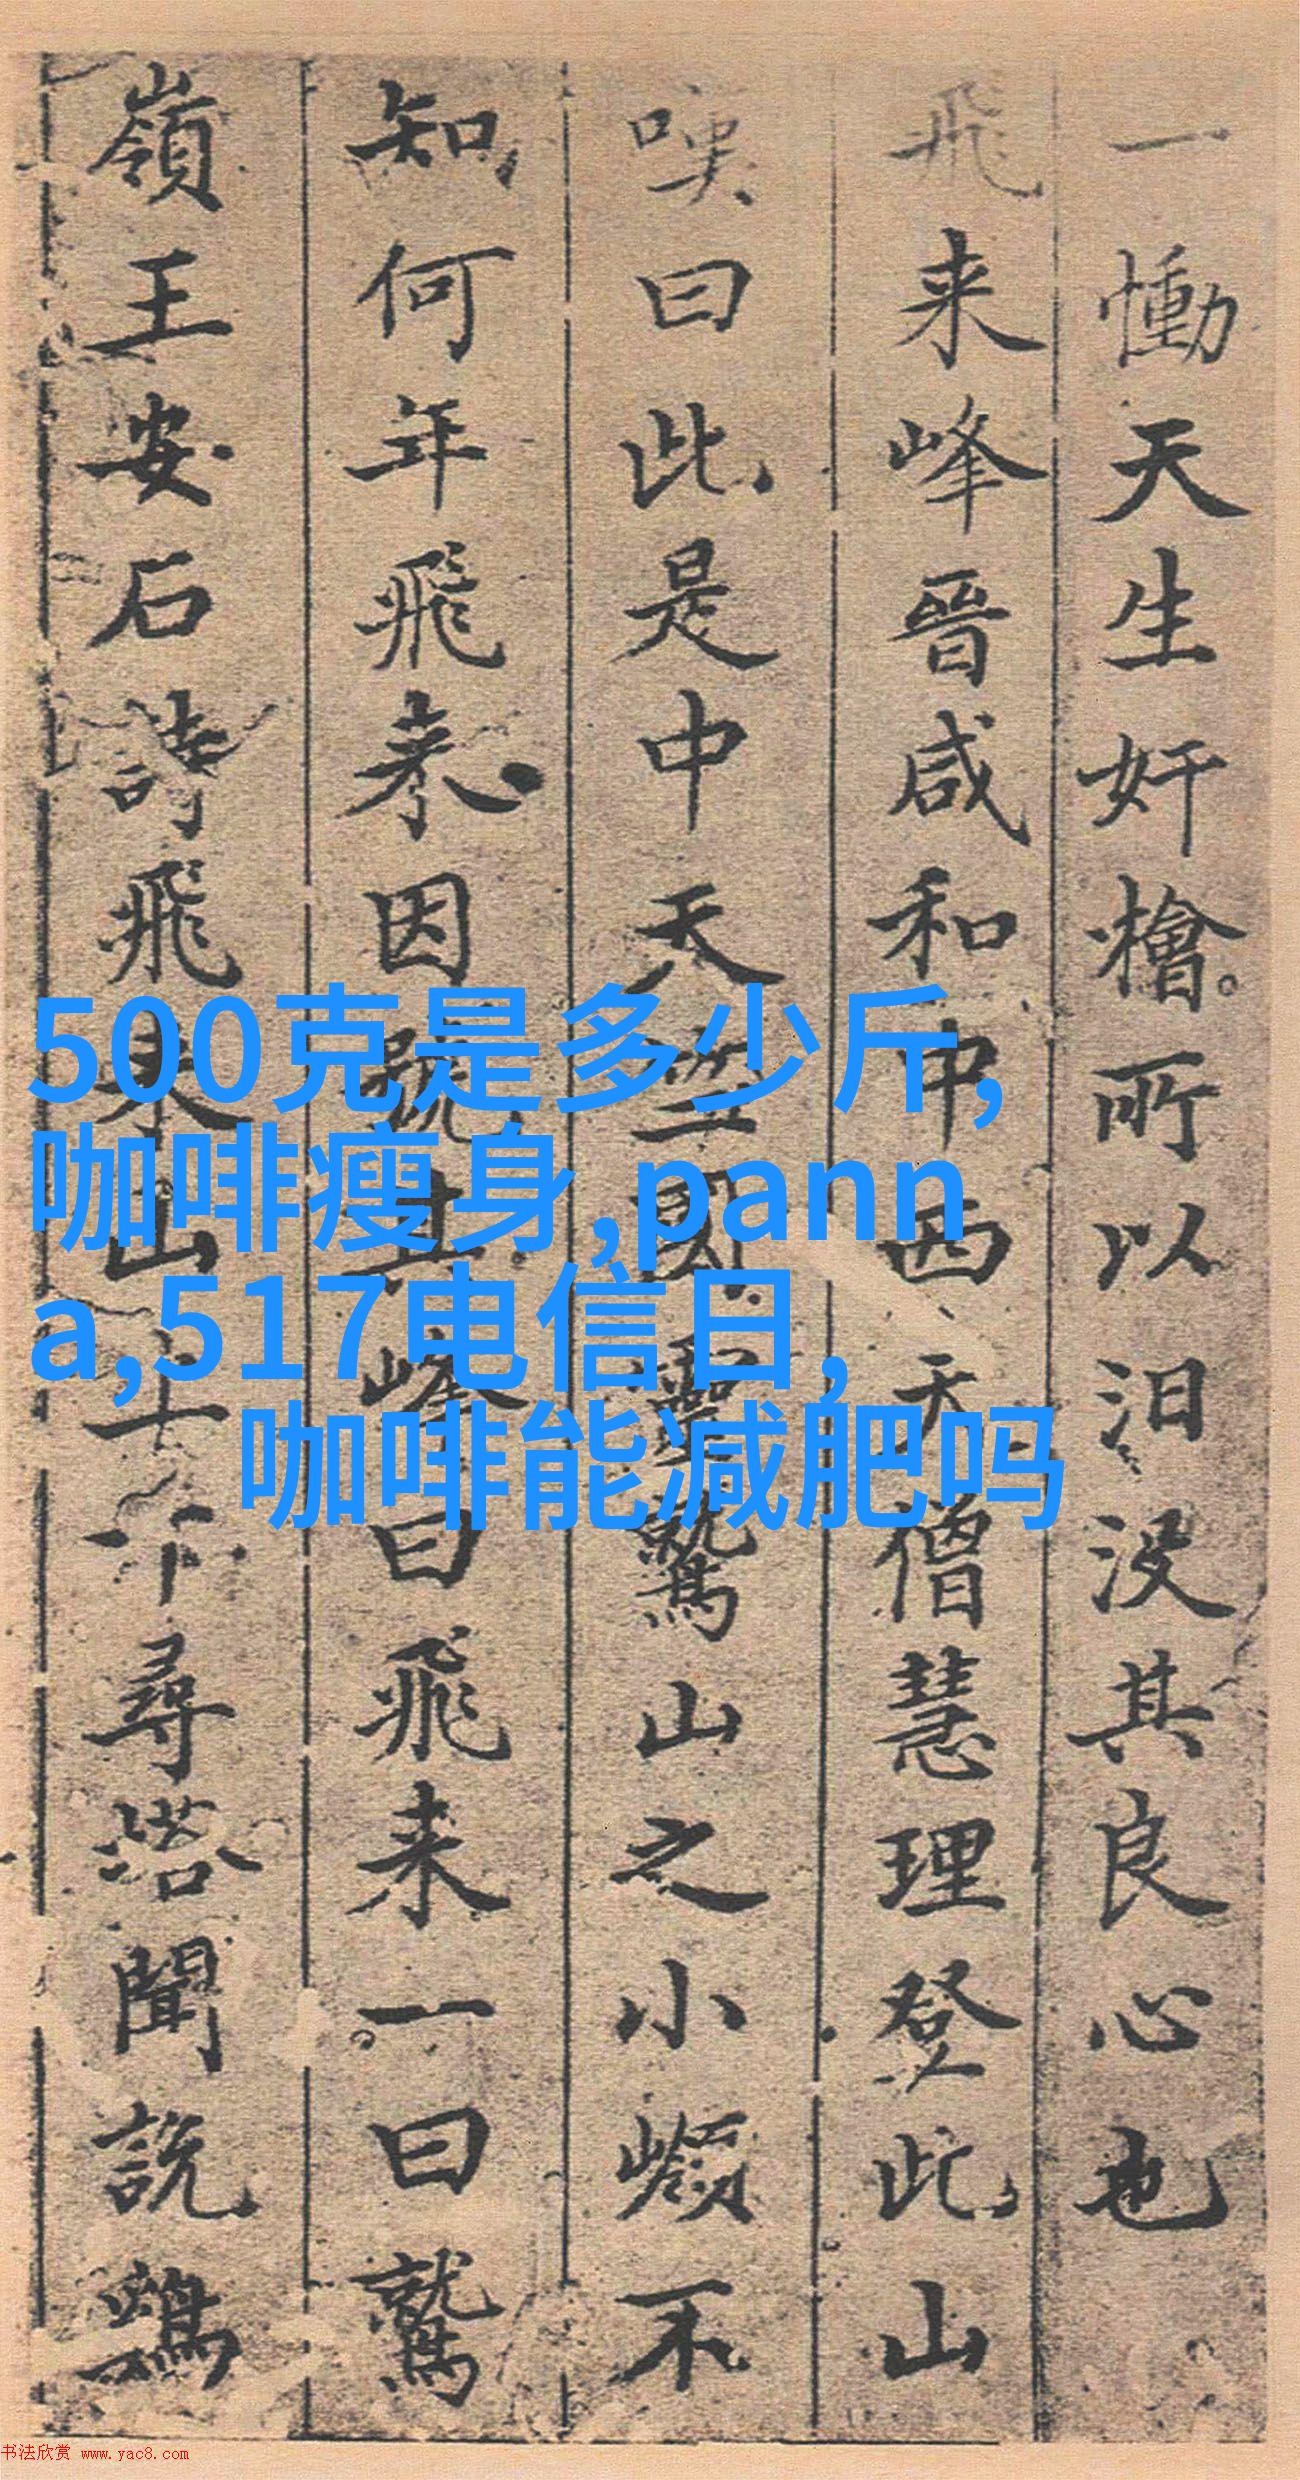 一慟天生奸檜所以汨没其良心也
飛来峰晉咸和中西天僧慧理登此山
嘆曰此是中天竺国靈鷲山之小嶺不
知何年飛来因號其峰曰飛来一曰鷲
嶺王安石詩飛来山上千尋塔聞説鷄
500克是多少斤,
咖啡瘦身 ,pann
a,517电信日,
咖啡能减肥吗
书法欣赏 www.yac8.com